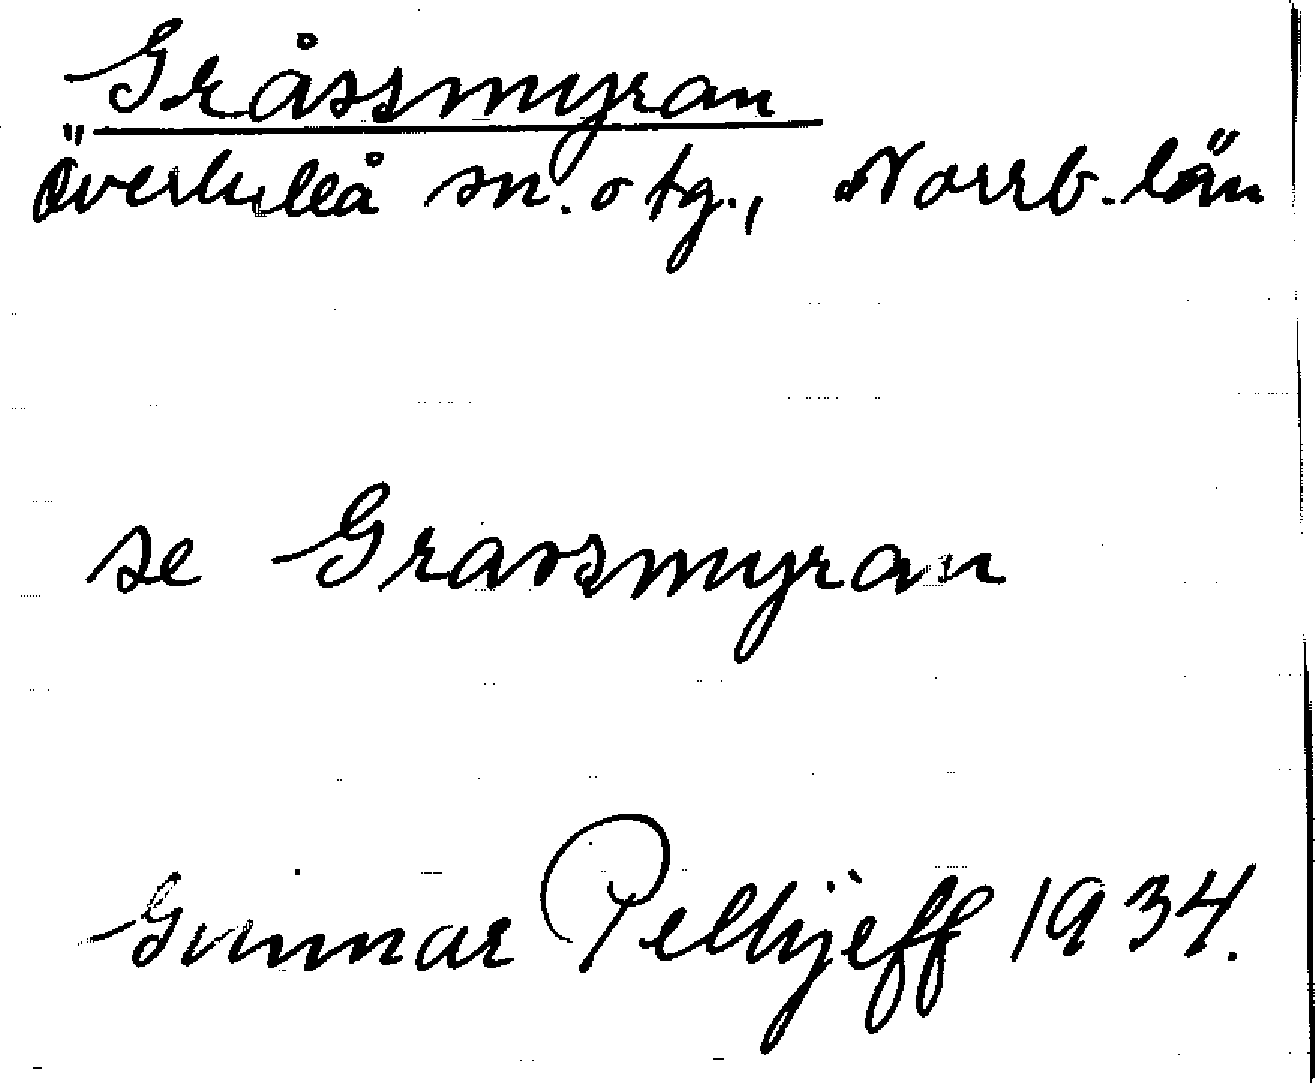 Gråssmyran
Överluleå sn. o tg., Norrb. län
se Grassmyran
Gunnar Pellijeff 1934.